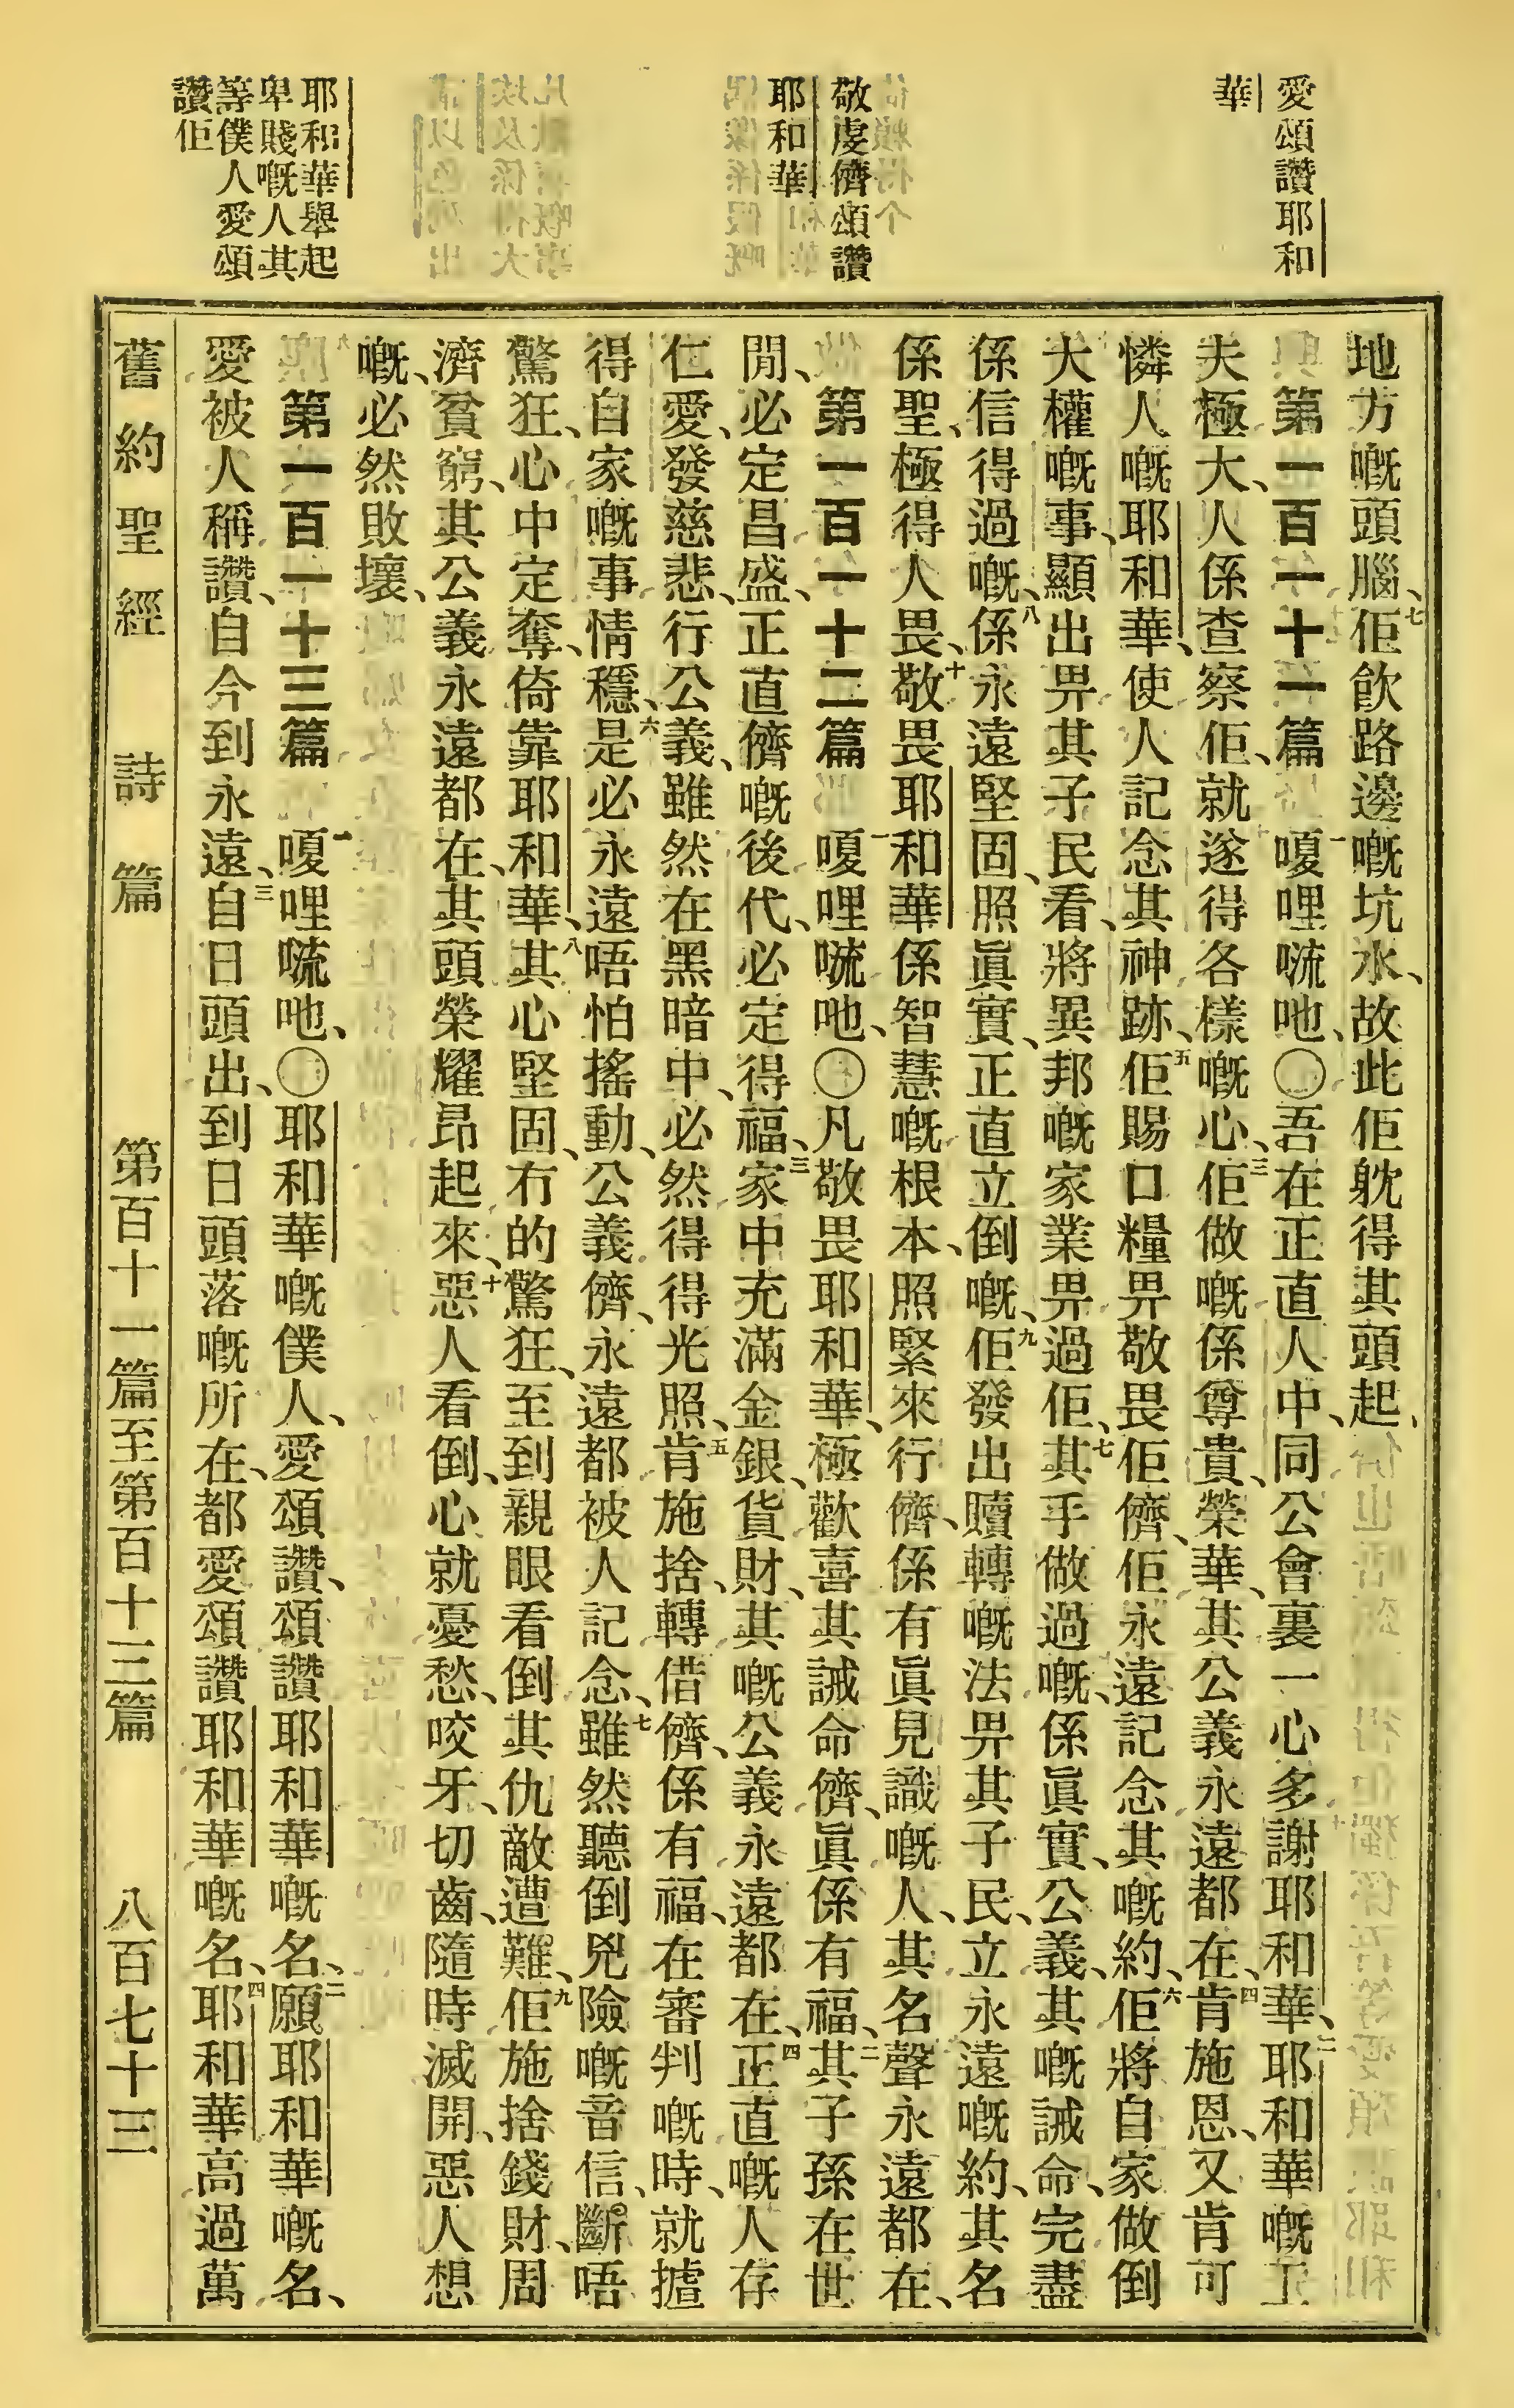 愛頌讚耶和
華
敬虔儕頌讚
耶和華
耶和華舉起
卑賤嘅人其
等僕人愛頌
讚佢
地方嘅頭腦、七佢飲路邊嘅坑水、故此佢躭得其頭起、
第一百一十一篇 一嗄哩㗭吔、〇吾在正直人中、同公會裏一心多謝耶和華、二耶和華嘅工
夫極大、人係查察佢、就遂得各樣嘅心、三佢做嘅係尊貴、榮華、其公義永遠都在、四肯施恩、又肯可
憐人嘅耶和華、使人記念其神跡、五佢賜口糧畀敬畏佢儕、佢永遠記念其嘅約、六佢將自家做倒
大權嘅事、顯出畀其子民看、將異邦嘅家業畀過佢、七其手做過嘅、係眞實、公義、其嘅誡命、完盡
係信得過嘅、八係永遠堅固、照眞實、正直立倒嘅、九佢發出贖轉嘅法畀其子民、立永遠嘅約、其名
係聖、極得人畏、十敬畏耶和華係智慧嘅根本、照緊來行儕、係有眞見識嘅人、其名聲永遠都在、
第一百一十二篇 一嗄哩㗭吔、〇凡敬畏耶和華、極歡喜其誡命儕、眞係有福、二其子孫在世
間、必定昌盛、正直儕嘅後代、必定得福、三家中充滿金銀、貨財、其嘅公義永遠都在、四正直嘅人存
仁愛、發慈悲、行公義、雖然在黑暗中、必然得得光照、五肯施捨、轉借儕、係有福、在審判嘅時、就㨿
得自家嘅事情穩、六是必永遠唔怕搖動、公義儕、永遠都被人記念、七雖然聽倒兇險嘅音信、斷唔
驚狂、心中定奪、倚靠耶和華、八其心堅固、冇的驚狂、至到親眼看倒其仇敵遭難、九佢施捨錢財、周
濟貧窮、其公義永遠都在、其頭榮耀昂起來、十惡人看倒、心就憂愁、咬牙、切齒、隨時滅開、惡人想
嘅、必然敗壞、
第一百一十三篇 一嗄哩㗭吔、〇耶和華嘅僕人、愛頌讚、頌讚耶和華嘅名、二願耶和華嘅名、
愛被人稱讚、自今到永遠、三自日頭出、到日頭落嘅所在、都愛頌讚耶和華嘅名、四耶和華高過萬
舊約聖經 詩篇 第百十一篇至第百十三篇 八百七十三